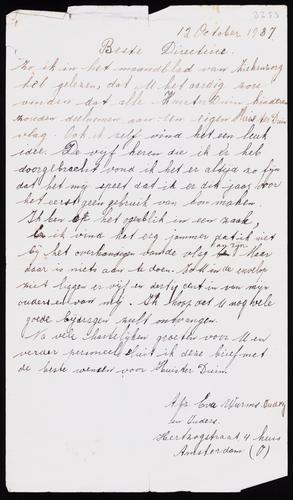 12 October 1937
Beste Directine.
Zo, ik in het maandblad van Ziekenzorg
heb gelezen, dat U het aardig zou
vinden dat alle Huis ter Duin kinderen
zouden deelnemen aan een eigen Huis ter Duin
vlag. Ook ik zelf vind het een leuk
idee. De vijf keren die ik er heb
doorgebracht vond ik het er altijd zo fijn
dat het mij speet dat ik er dit jaar voor
het eerst geen gebruik van kon maken.
Ik ben op het ogenblik in een zaak,
en ik vind het erg jammer dat ik niet
bij het overhandigen van de vlag kan zijn. Maar
daar is niets aan te doen. Zoals U in de envelop
ziet liggen er vijf en dertig cent in van mijn
ouders en van mij. Ik hoop dat U nog vele
goede bijdragen zult ontvangen.
Na vele hartelijken groeten voor U en
verder personeel sluit ik deze brief met
de beste wensen voor Huister Duin.
Afz. Eva Wurms.
en Ouders.
Hertzogstraat 4 huis
Amsterdam (O)